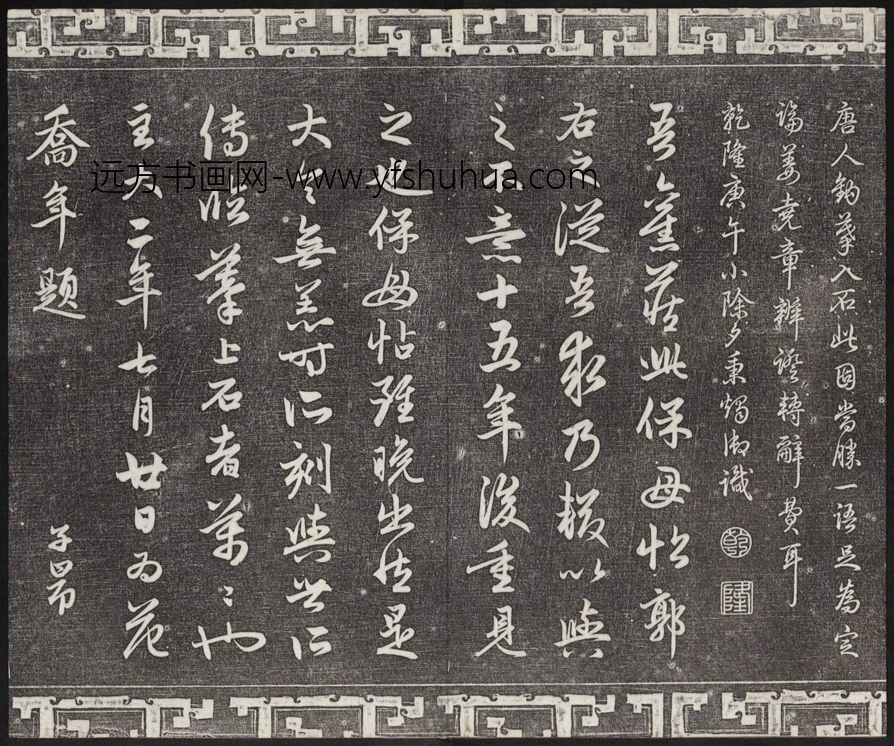 唐人鈎摹入石此固當勝一語足為定
論姜堯章辨證轉辭費耳
乾隆庚午小除夕秉燭御識
乾
隆
吾舊藏此保母帖郭
右之從吾求乃輟以與
之不意十五年後重見
之也保母帖雖晚出然是
大令無恙時所刻與世所
傳臨摹上石者萬〻也
至大二年七月廿日為范
喬年題
子昂
远方书画网-www.yfshuhua.com